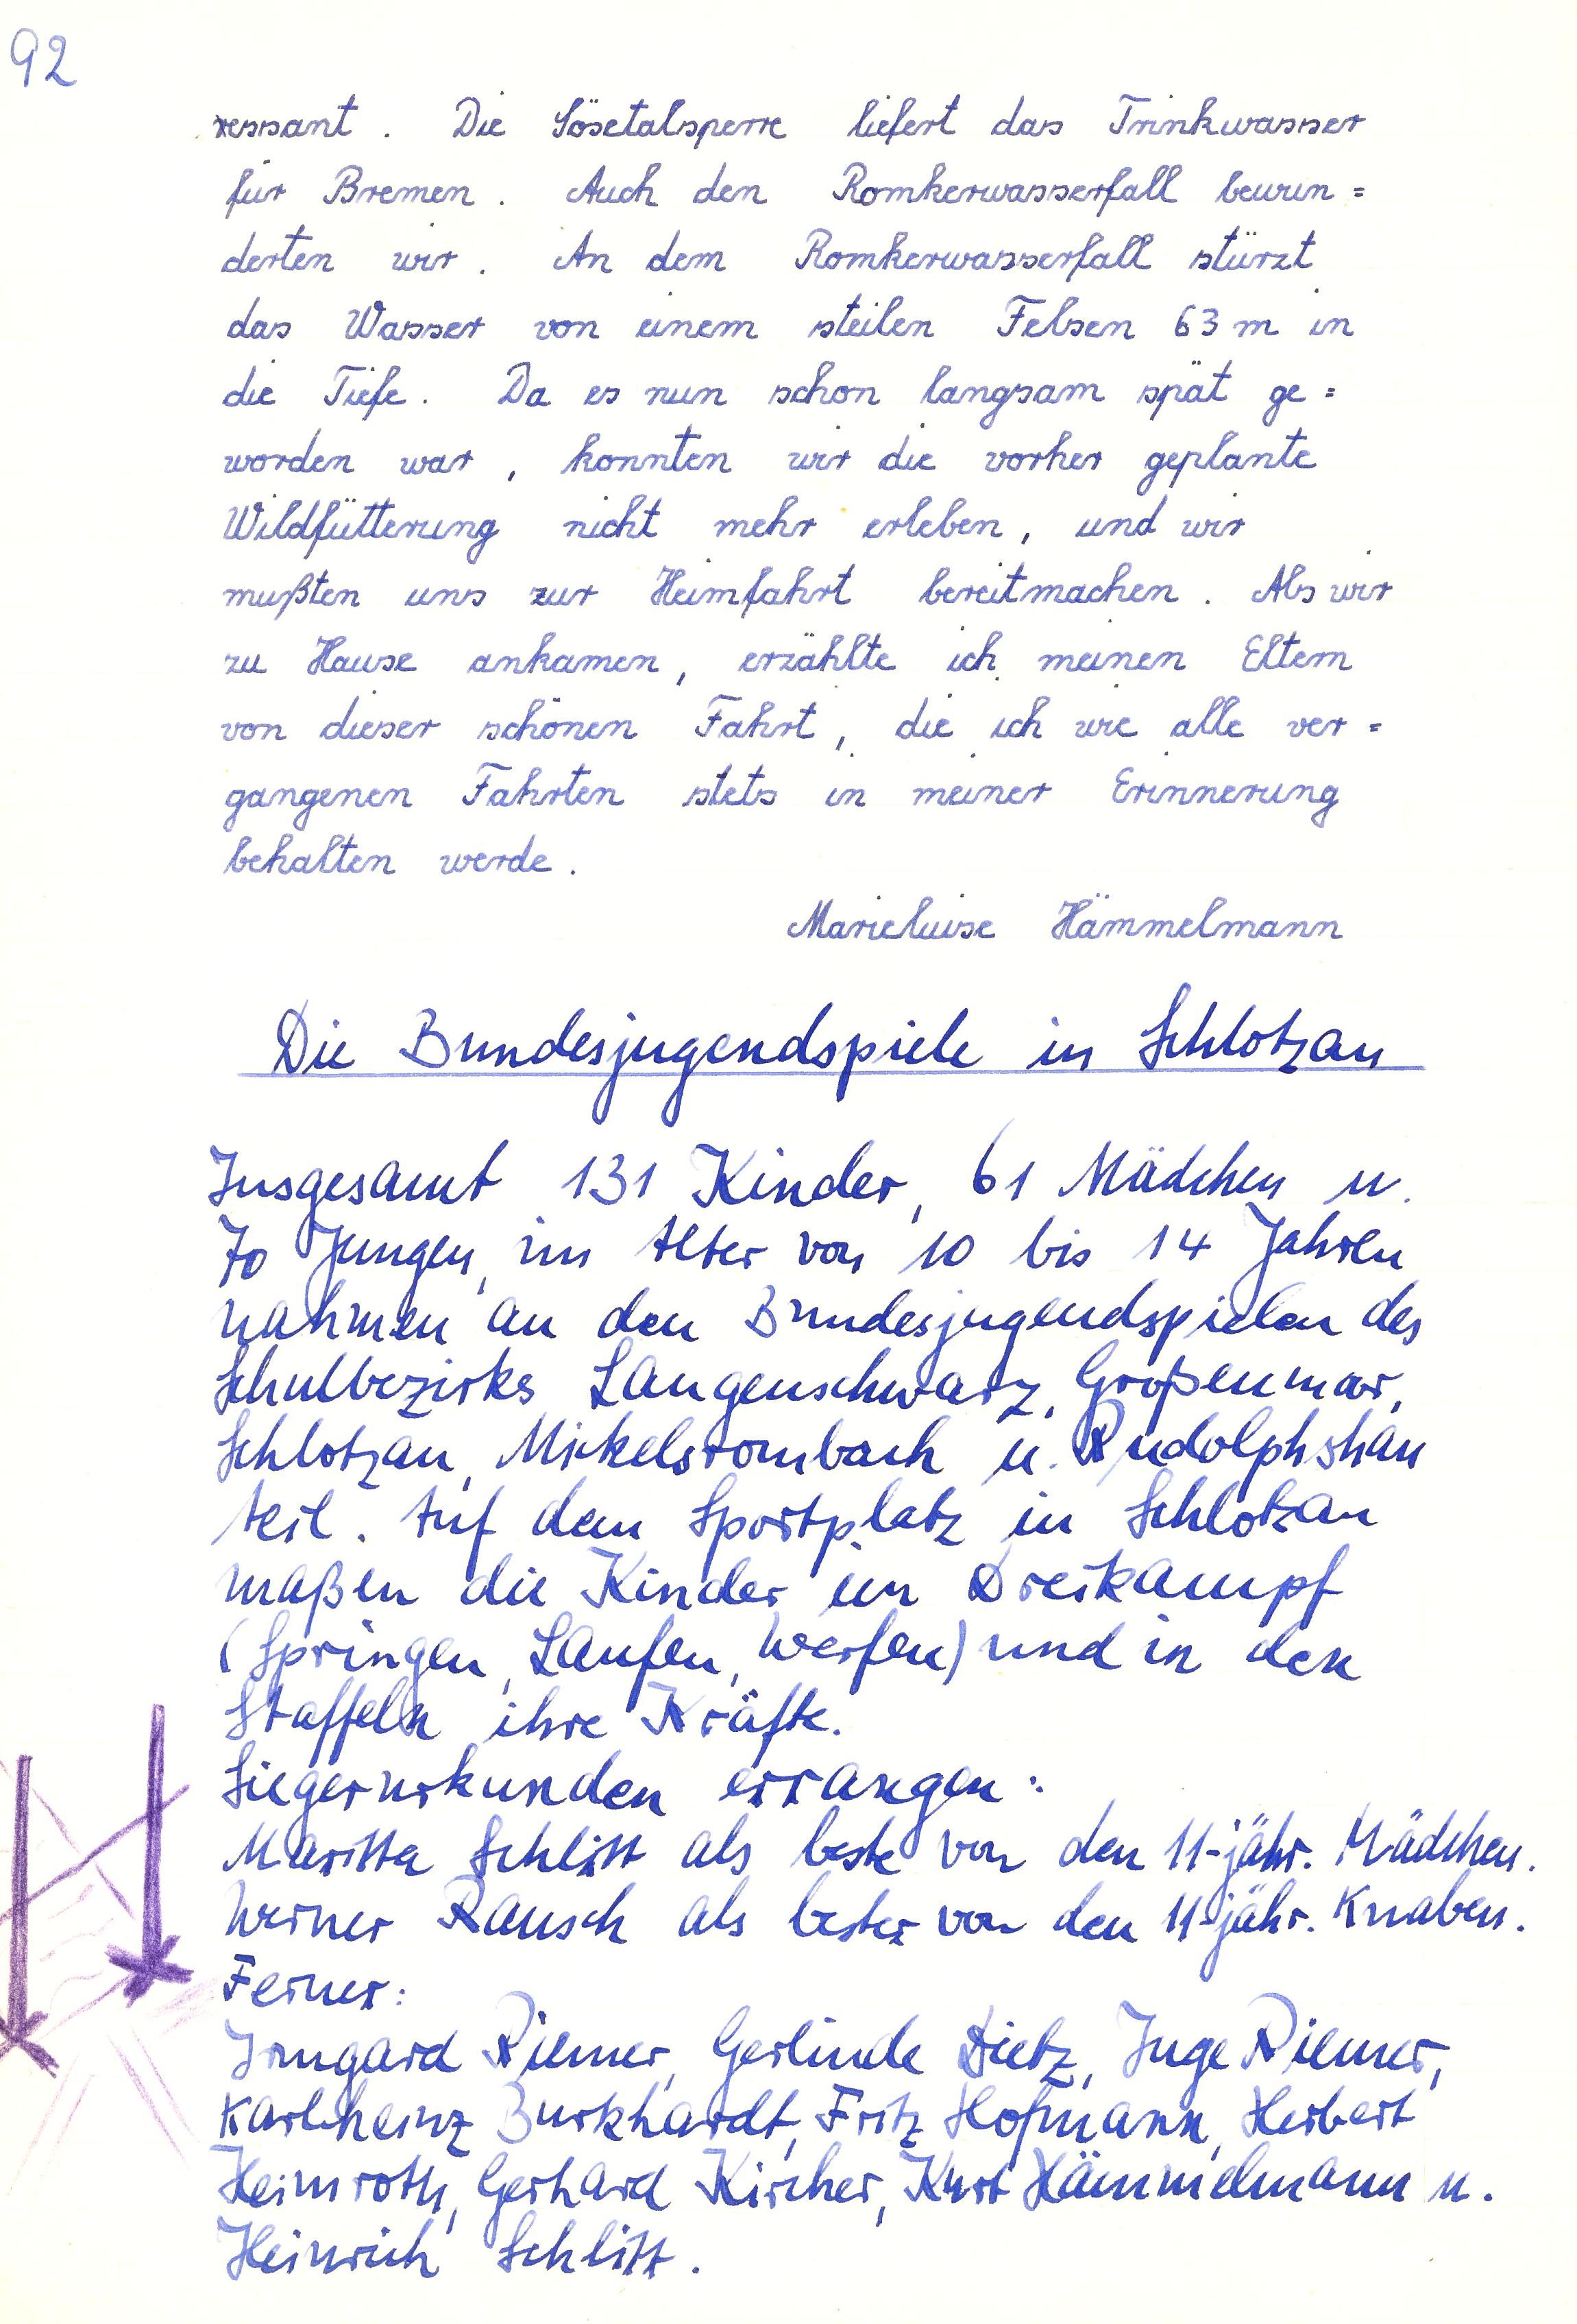 92
ressant. Die Sösetalsperre liefert das Trinkwasser
für Bremen. Auch den Romkerwasserfall bewun=
derten wir. An dem Romkerwasserfall stürzt
das Wasser von einem steilen Felsen 63 m in
die Tiefe. Da es nun schon langsam spät ge=
worden war, konnten wir die vorher geplante
Wildfütterung nicht mehr erleben, und wir
mußten uns zur Heimfahrt bereitmachen. Als wir
zu Hause ankamen, erzählte ich meinen Eltern
von dieser schönen Fahrt, die ich wie alle ver=
gangenen Fahrten stets in meiner Erinnerung
behalten werde.
Marieluise Hämmelmann
Die Bundesjugendspiele in Schlotzau
Insgesamt 131 Kinder, 61 Mädchen u.
70 Jungen, im Alter von 10 bis 14 Jahren
nahmen an den Bundesjugendspielen des
Schulbezirks Langenschwarz, Großenmor,
Schlotzau, Michelsrombach u. Rudolphshan
teil. Auf dem Sportplatz in Schlotzau
maßen die Kinder im Dreikampf
(Springen, Laufen, Werfen) und in den
Staffeln ihre Kräfte.
Siegerurkunden errangen:
Maritta Schlitt als beste von den 11-jähr. Mädchen.
Werner Rausch als bester von den 11-jähr. Knaben.
Ferner:
Irmgard Riemer, Gerlinde Dietz, Inge Riemer,
Karlheinz Burkhardt, Fritz Hofmann, Herbert
Heimroth, Gerhard Kircher, Kurt Hämmelmann u.
Heinrich Schlitt.